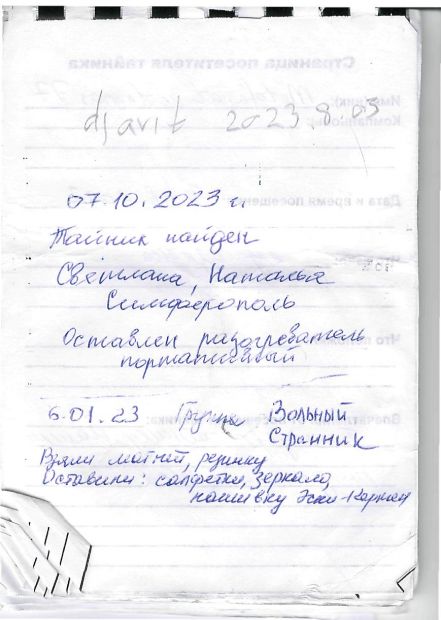 djavit 2023.8.03
07.10.2023 г.
Тайник найден
Светлана, Наталья
Симферополь
Оставлен разогреватель
портативный
6.01.23 Группа Вольный
Странник
Взяли магнит, резинку
Оставили: салфетки, зеркало,
нашивку Эски-Кермен